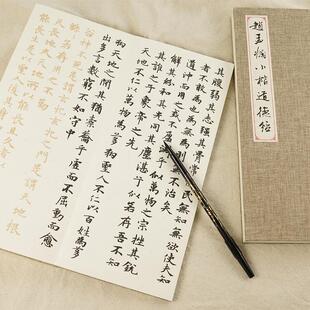 趙孟頫小楷道德經
其腹弱其志強其骨常使民無知無欲使夫知
者不敢為也為無為則無不治矣
道沖而用之或不盈淵乎似萬物之宗挫其銳
解其紛和其光同其塵湛兮似若存吾不知
其誰之子象帝之先
天地不仁以萬物為芻狗聖人不仁以百姓為芻
狗天地之間其猶橐籥乎虛而不屈動而愈
出多言數窮不如守中
谷神不死是謂玄牝玄牝之門是謂天地根
綿綿若存用之不勤